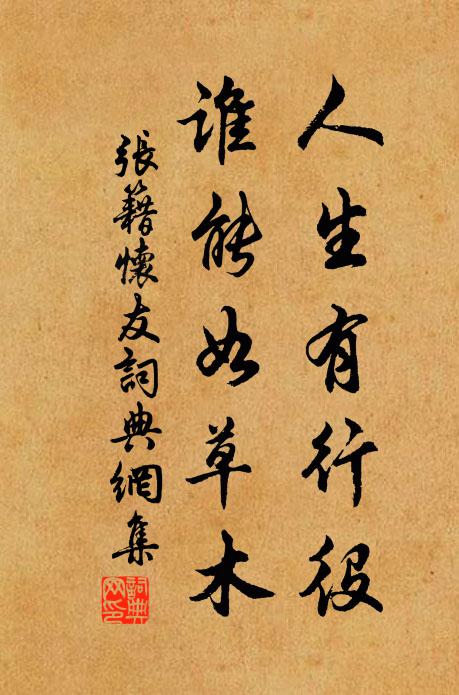 人生有行役
誰能如草木
張籍懷友詞典網集
詞典网印